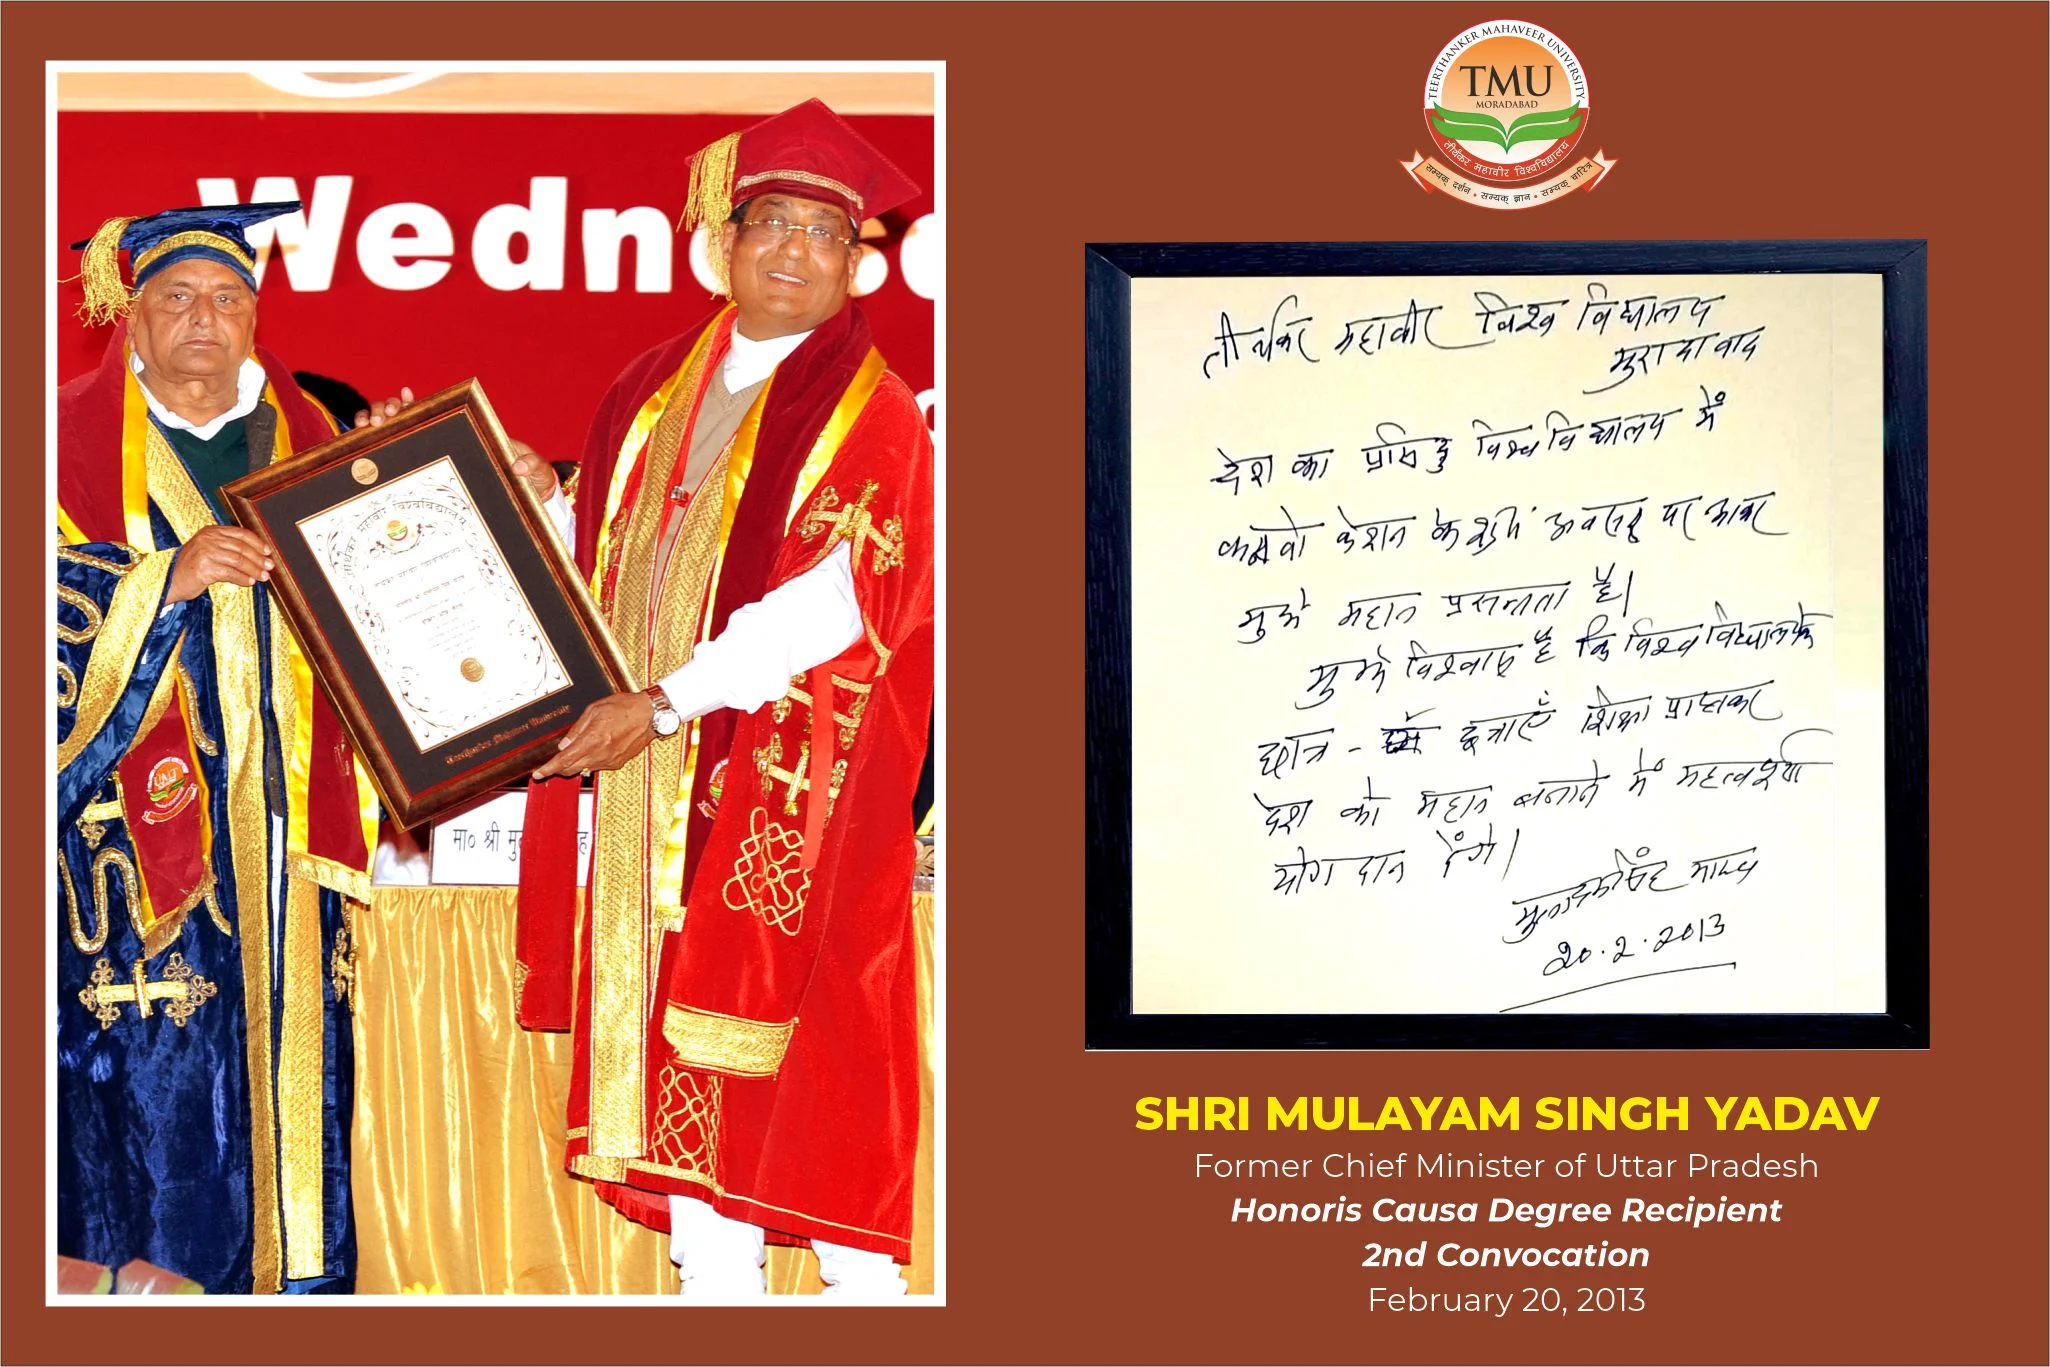 Wednesd
तीर्थंकर महावीर विश्वविद्यालय
Teerthanker Mahaveer University
मा० श्री मु
TEERTHANKER MAHAVEER UNIVERSITY
TMU
MORADABAD
तीर्थंकर महावीर विश्वविद्यालय
सम्यक् दर्शन • सम्यक् ज्ञान • सम्यक् चारित्र
तीर्थंकर महावीर विश्व विद्यालय
मुरादाबाद
देश का प्रसिद्ध विश्वविद्यालय में
के शुभ अवसर पर आकर
मुझे महान प्रसन्नता है।
मुझे विश्वास है कि विश्व विद्यालय के
छात्र - छात्राएँ शिक्षा प्राप्त कर
देश को महान बनाने में महत्वपूर्ण
योगदान देंगे।
मुलायम सिंह यादव
20.2.2013
SHRI MULAYAM SINGH YADAV
Former Chief Minister of Uttar Pradesh
Honoris Causa Degree Recipient
2nd Convocation
February 20, 2013